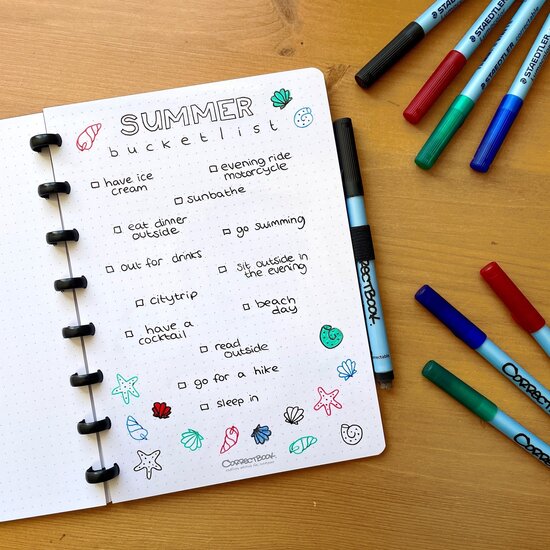 SUMMER
bucketlist
have ice
cream
evening ride
motorcycle
sunbathe
eat dinner
outside
go swimming
out for drinks
sit outside in
the evening
citytrip
beach
day
have a
cocktail
read
outside
go for a hike
sleep in
CORRECTBOOK
STAEDTLER
STAEDTLER
STAEDTLER correctable
STAEDTLER
RRECTBOOK.
rrectable
CORRECTBOOK
CORREC